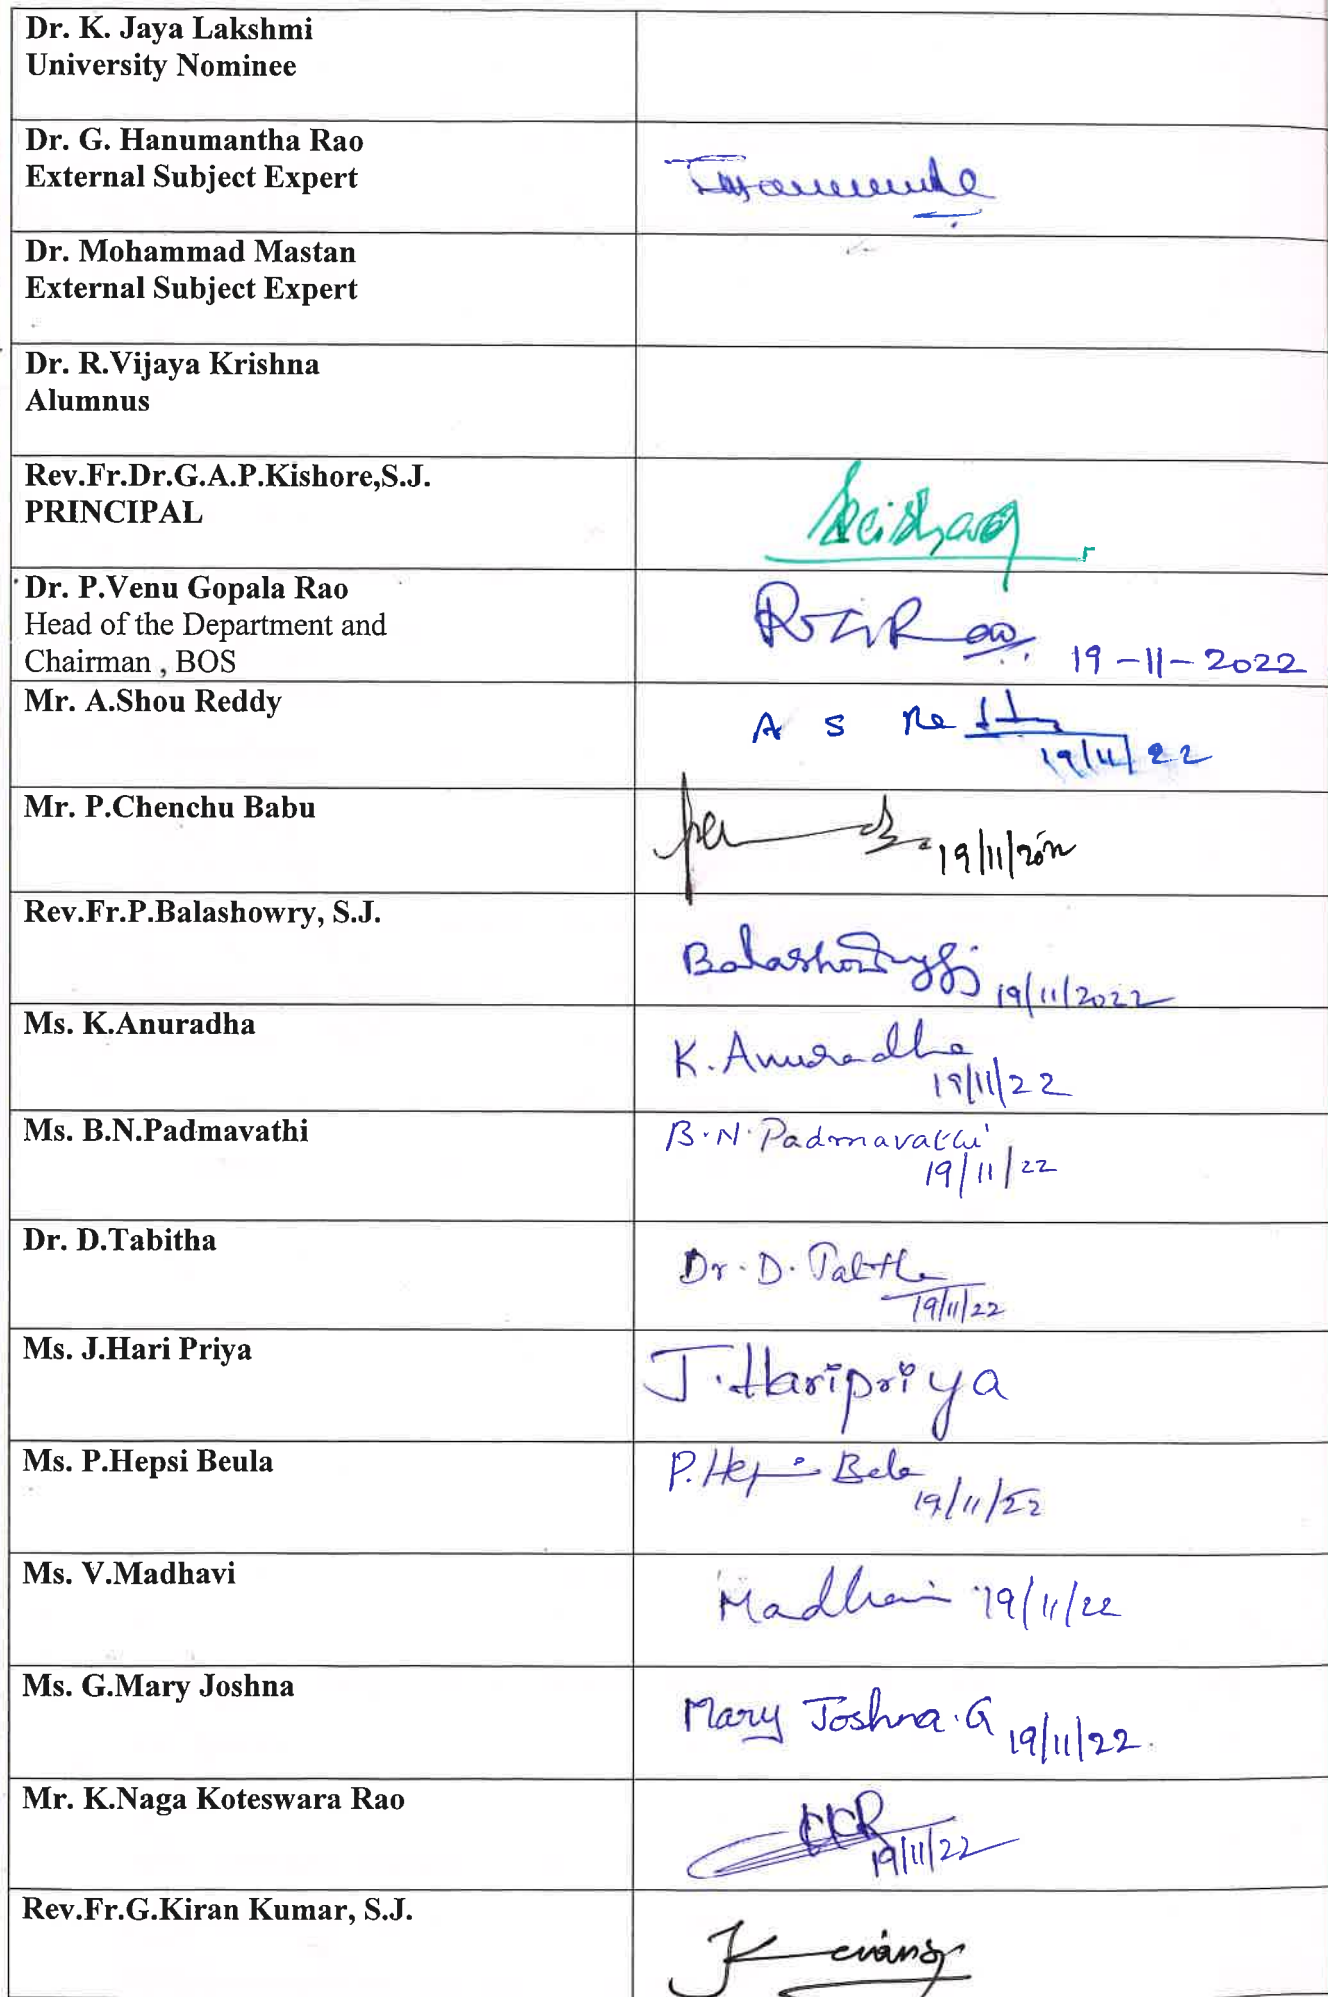 Dr. K. Jaya Lakshmi
University Nominee
Dr. G. Hanumantha Rao
External Subject Expert
Dr. Mohammad Mastan
External Subject Expert
Dr. R.Vijaya Krishna
Alumnus
Rev.Fr.Dr.G.A.P.Kishore,S.J.
PRINCIPAL
Dr. P.Venu Gopala Rao
Head of the Department and
Chairman , BOS
19-11-2022
Mr. A.Shou Reddy
A S
19/11/22
Mr. P.Chenchu Babu
19/11/
Rev.Fr.P.Balashowry, S.J.
19/11/2022
Ms. K.Anuradha
K. Anuradha
19/11/22
Ms. B.N.Padmavathi
B.N. Padmavathi
19/11/22
Dr. D.Tabitha
Dr. D.
19/11/22
Ms. J.Hari Priya
J.Haripriya
Ms. P.Hepsi Beula
P.
19/11/22
Ms. V.Madhavi
Madhavi 19/11/22
Ms. G.Mary Joshna
Mary Joshna.G 19/11/22.
Mr. K.Naga Koteswara Rao
KKR
19/11/22
Rev.Fr.G.Kiran Kumar, S.J.